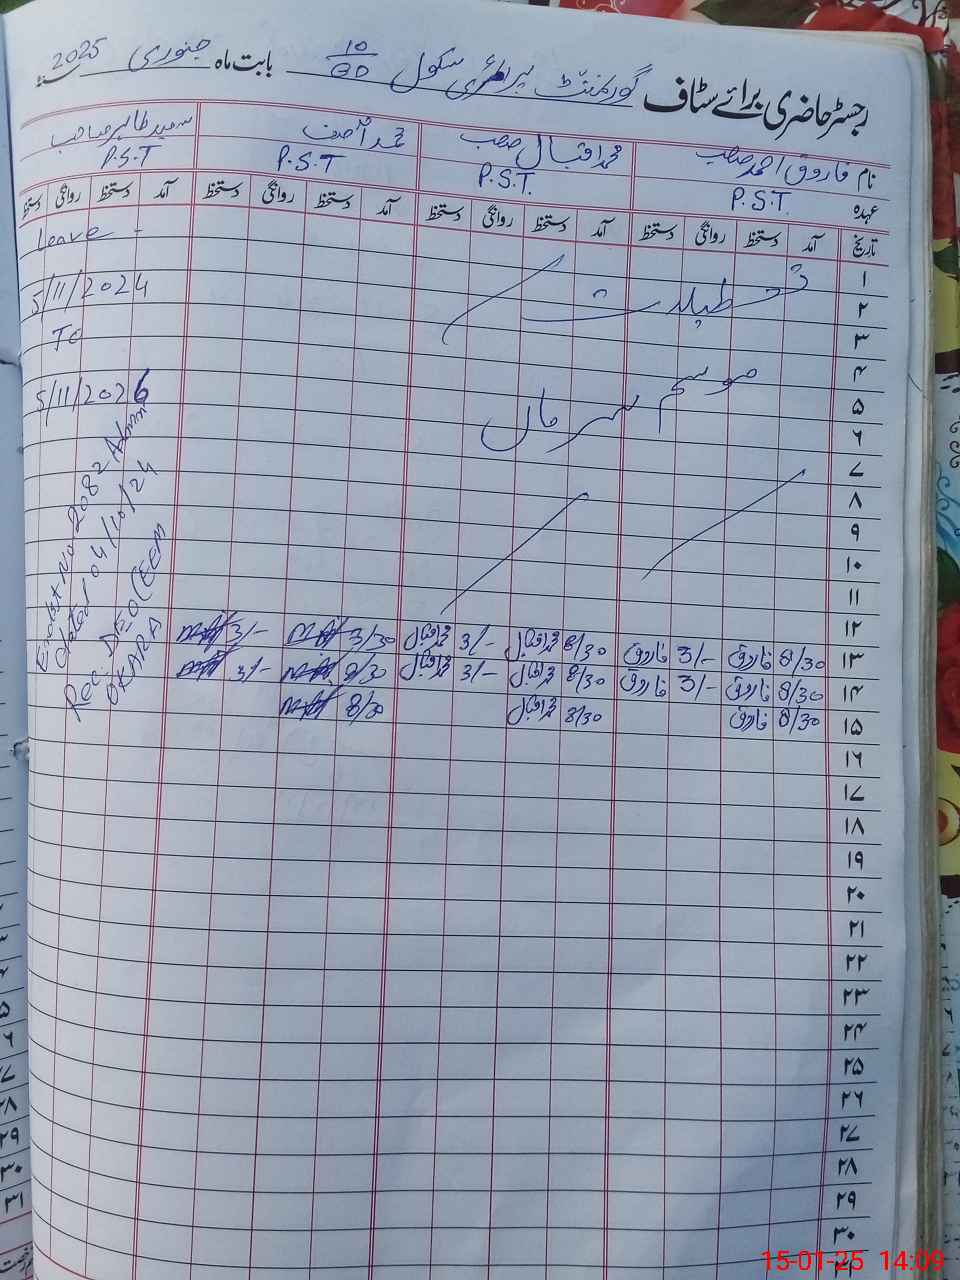 رجسٹر حاضری برائے سٹاف گورنمنٹ پرائمری سکول 10 بابت ماہ جنوری 2025
نام فاروق احمد صاحب محمد اقبال صاحب محمد آصف سعید طاہر صاحب
عہدہ P.S.T. P.S.T. P.S.T P.S.T
تاریخ آمد دستخط روانگی دستخط آمد دستخط روانگی دستخط آمد دستخط روانگی دستخط آمد دستخط روانگی دستخط
Leave -
۱
5/11/2024
۲
To
۳
۴
5/11/2026
۵
موسم سرما
۶
۷
۸
۹
۱۰
۱۱
۱۲
No 2082 Admn
dated 04/10/24
DEO (EEM
OKARA
۱۳ 8/30 فاروق 3/- فاروق 8/30 محمد اقبال 3/- محمد اقبال 3/30 3/-
۱۴ 8/30 فاروق 3/- فاروق 8/30 محمد اقبال 3/- محمد اقبال 8/30 3/-
۱۵ 8/30 فاروق 8/30 محمد اقبال 8/30
۱۶
۱۷
۱۸
۱۹
۲۰
۲۱
۲۲
۲۳
۲۴
۲۵
۲۶
۲۷
۲۸
۲۹
۳۰
۳۱
15-01-25 14:09